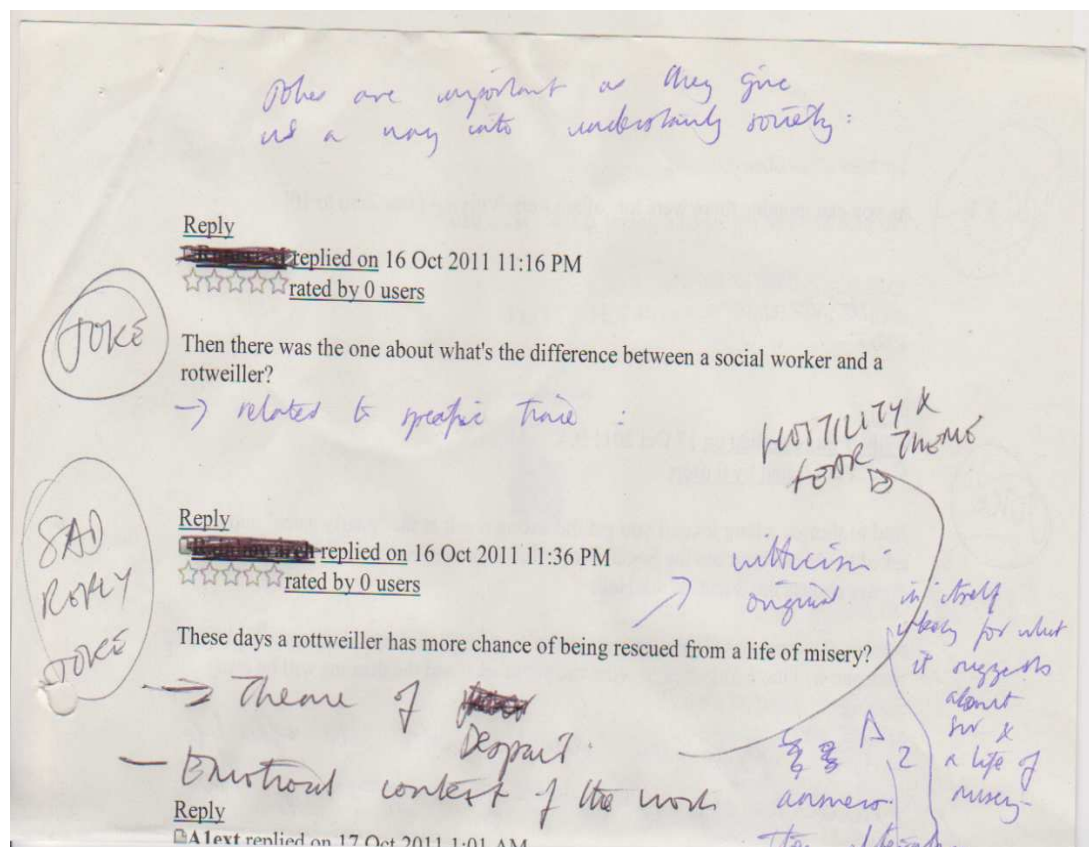 Jokes are important as they give
us a way into understanding society:
Reply
replied on 16 Oct 2011 11:16 PM
rated by 0 users
JOKE
Then there was the one about what's the difference between a social worker and a
rotweiller?
→ related to specific :
HOSTILITY &
FEAR THEME
Reply
replied on 16 Oct 2011 11:36 PM
rated by 0 users
SAD
REPLY
JOKE
witticism
original
These days a rottweiller has more chance of being rescued from a life of misery?
in itself
for what
it suggests
about
SW &
a life of
misery
→ Theme of
Despair.
- Emotional context of the work
answers
Reply
A1ext replied on 17 Oct 2011 1:01 AM